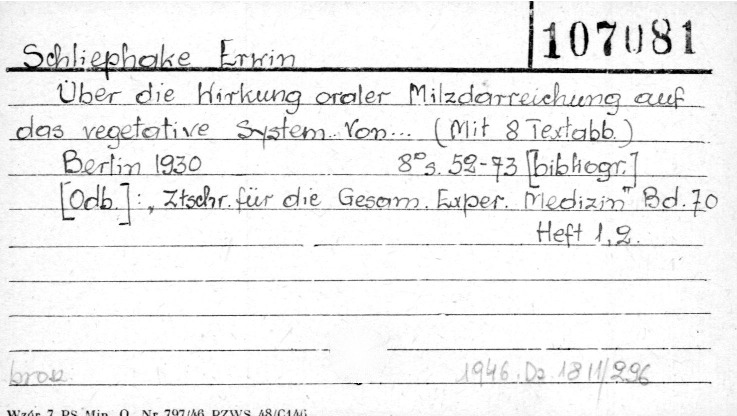 107081
Schliephake Erwin
Über die Wirkung oraler Milzdarreichung auf
das vegetative System. Von... (Mit 8 Textabb.)
Berlin 1930 8° s. 52-73 [bibliogr.]
[Odb.]: „Ztschr. für die Gesam. Exper. Medizin" Bd. 70
Heft 1,2.
brosz. 1946. Dz. 18 II/296
Wzór 7 PS Min. O. Nr 797/46 PZWS 48/C146